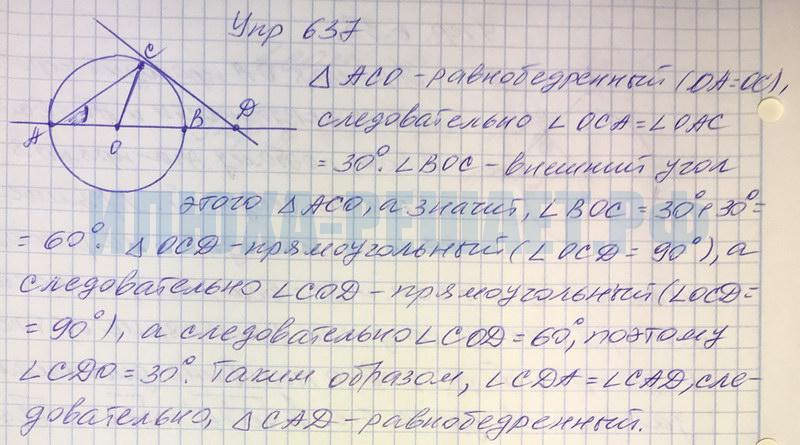 Упр 637
C
A
O
B
D
△ ACO - равнобедренный (OA = OC),
следовательно ∠ OCA = ∠ OAC
= 30°. ∠ BOC - внешний угол
этого △ ACO, а значит, ∠ BOC = 30° + 30° =
= 60°. △ OCD - прямоугольный (∠ OCD = 90°), а
следовательно ∠ COD - прямоугольный (∠ OCD =
= 90°), а следовательно ∠ COD = 60°, поэтому
∠ CDO = 30°. Таким образом, ∠ CDA = ∠ CAD, сле-
довательно, △ CAD - равнобедренный.